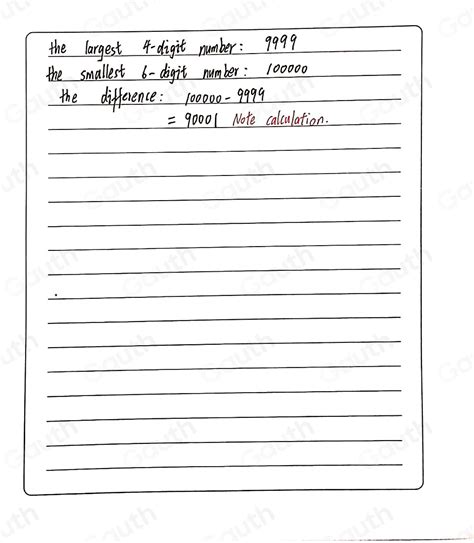 the largest 4-digit number: 9999
the smallest 6-digit number: 100000
the difference: 100000 - 9999
= 90001 Note calculation.